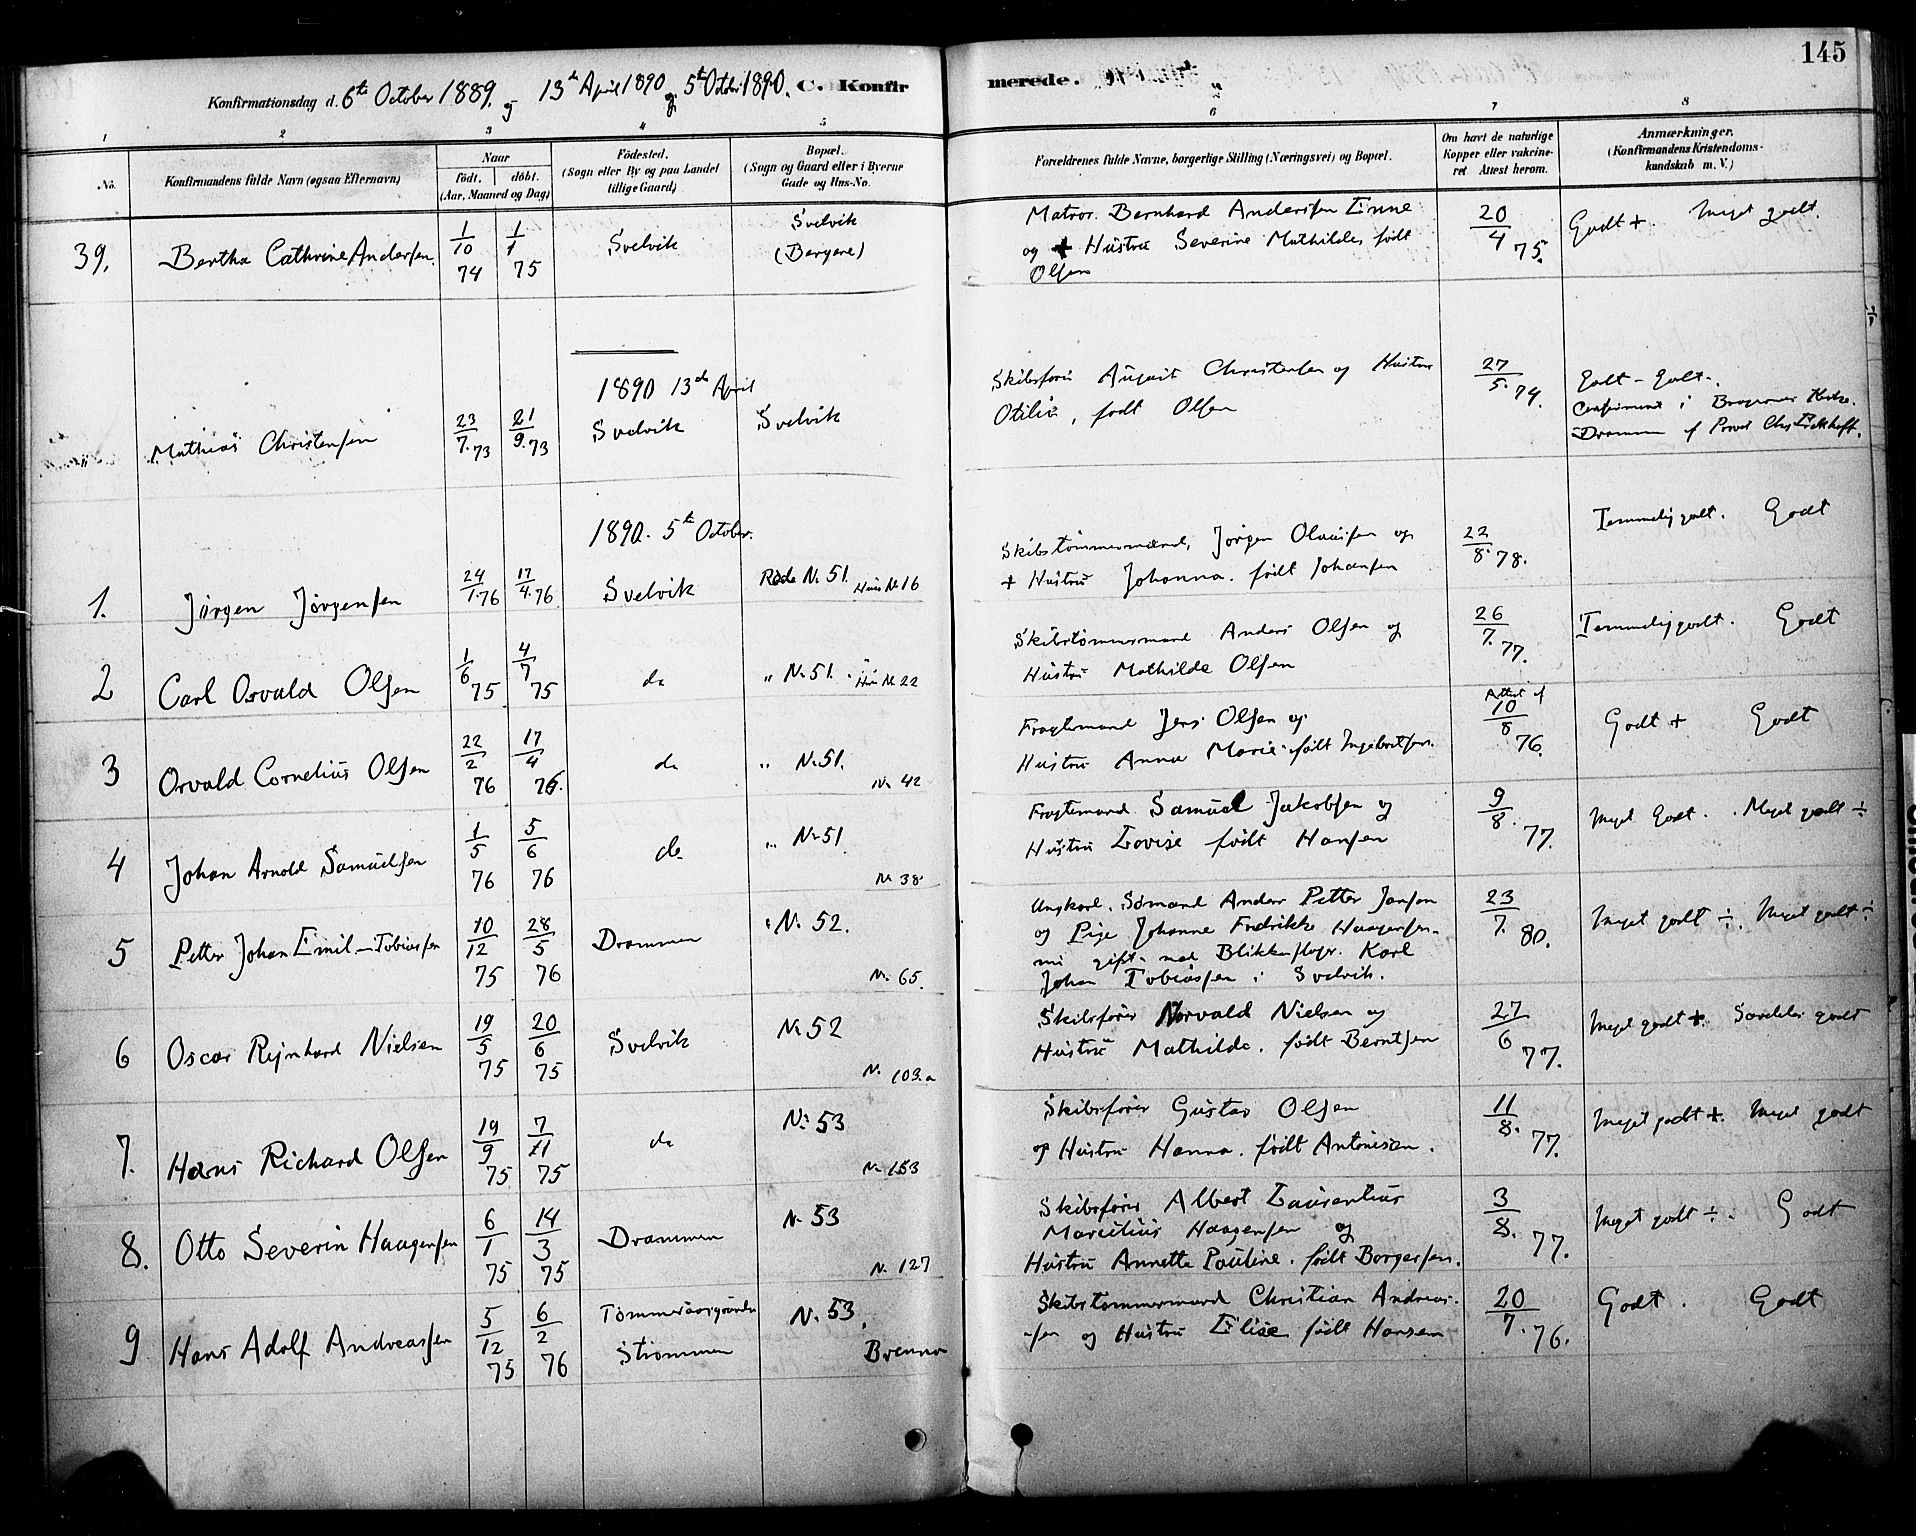 145
Konfirmationsdag d. 6te October 1889. og 13de April 1890 og 5te Octbr. 1890. C. Konfirmerede.
1 2 3 4 5 6 7 8
No.
Konfirmandens fulde Navn (ogsaa Efternavn)
Naar
født. døbt.
(Aar, Maaned og Dag)
Fødested.
(Sogn eller By og paa Landet
tillige Gaard)
Bopæl.
(Sogn og Gaard eller i Byerne
Gade og Hus-No.
Forældrenes fulde Navne, borgerlige Stilling (Næringsvei) og Bopæl.
Om havt de naturlige
Kopper eller vakcine-
ret Attest herom.
Anmærkninger.
(Konfirmandens Kristendoms-
kundskab m. V.)
39. Bertha Cathrine Andersen. 1/10 74 1/1 75 Svelvik Svelvik (Bergene)
Matros. Bernhard Andersen Enne
og + Hustru Severine Mathilde, født
Olsen
20/4 75. Godt +. Meget godt.
1890 13de April
Mathias Christensen 23/7. 73 21/9. 73 Svelvik Svelvik
Skibsfører August Christensen og Hustru
Otilie, født Olsen
27/5. 74. Godt - Godt -.
Confirmeret i Bragernes Kirke.
Drammen af Provst Chr. Eckhoff.
1890. 5te October.
1. Jørgen Jørgensen 24/1. 76 17/4. 76 Svelvik Rode N. 51. Huus N. 16
Skibstømmermand, Jørgen Olausen og
+ Hustru Johanna. født Johansen
22/8. 78. Temmelig godt. Godt
2 Carl Osvald Olsen 1/6 75 4/7 75 do " N. 51. Hus N. 22
Skibstømmermand Anders Olsen og
Hustru Mathilde Olsen
26/7. 77. Temmelig godt. Godt
3 Osvald Cornelius Olsen 22/2 76 17/4 76. do " N. 51. N. 42
Fragtemand Jens Olsen og
Hustru Anna Marie. født Ingebretsen.
Attest af 10/8 76. Godt + Godt
4 Johan Arnold Samuelsen 1/5 76 5/6 76 do " N. 51 N. 38
Fragtemand Samuel Jakobsen og
Hustru Lovise født Hansen
9/8. 77. Meget Godt. Meget godt ÷
5 Petter Johan Emil - Tobiassen 10/12 75 28/5 76 Drammen " N. 52. N. 65.
Ungkarl. Sømand Anders Petter Jansen
og Pige Johanne Fredrikke Haagensen.
nu gift. med Blikkenslager. Karl
Johan Tobiassen i Svelvik.
23/7. 80. Meget godt ÷. Meget godt ÷
6 Oscar Rejnhard Nielsen 19/5 75 20/6 75 Svelvik N. 52 N. 103.a
Skibsfører Norvald Nielsen og
Hustru Mathilde. født Berntsen
27/6 77. Meget godt +. Særdeles godt
7. Hans Richard Olsen 19/9 75 7/11 75 do N. 53 N. 153
Skibsfører Gustav Olsen
og Hustru Hanna. født Antonisen.
11/8. 77. Meget godt +. Meget godt
8. Otto Severin Haagensen 6/1 75 14/3 75 Drammen N. 53 N. 127
Skibsfører Albert Laurentius
Marcilius Haagensen og
Hustru Annette Pauline. født Borgersen.
3/8. 77. Meget godt ÷. Godt
9 Hans Adolf Andreassen 5/12 75 6/2 76 Tømmeraasgrunden Strømmen N. 53. Brenna
Skibstømmermand Christian Andreas-
-sen og Hustru Elise født Hansen
20/7. 76. Godt. Godt